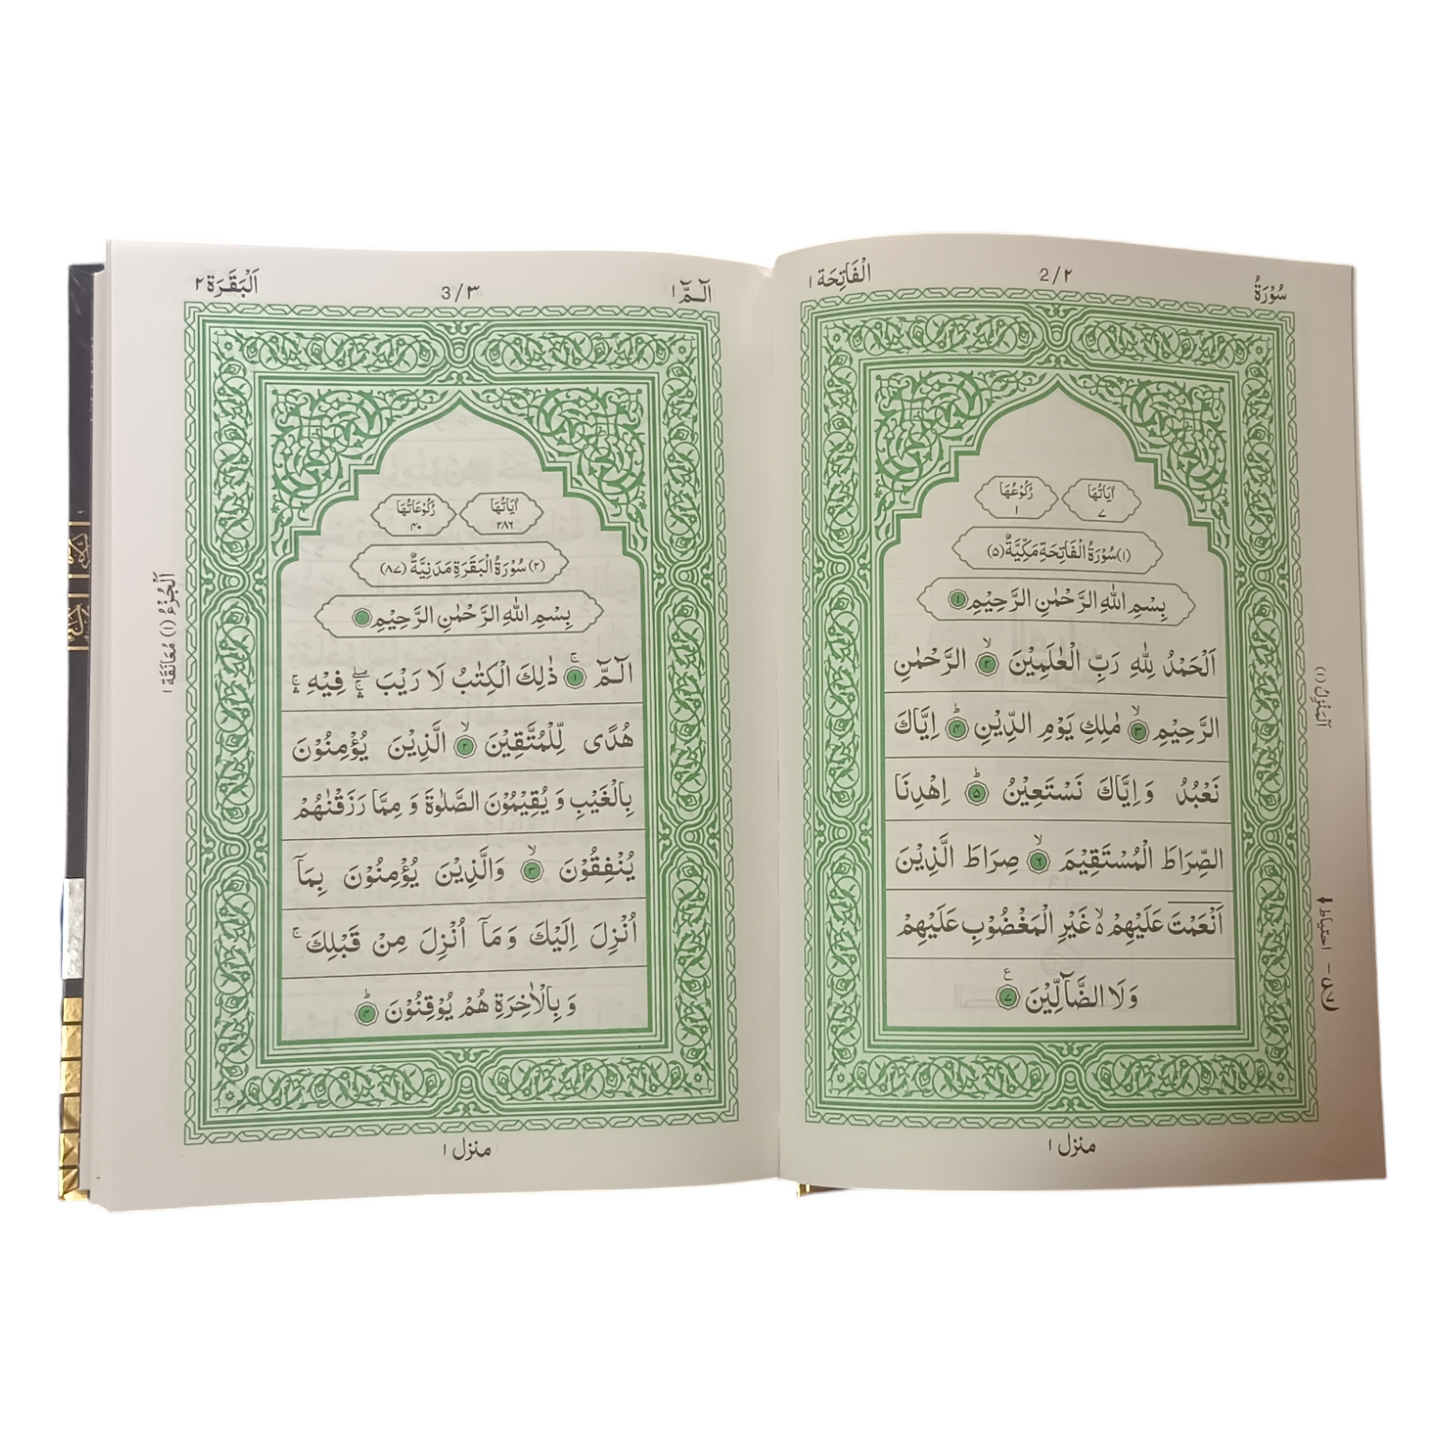 سُوْرَةُ
2/٢
الْفَاتِحَة ١
اٰيَاتُهَا
٧
رُكُوْعُهَا
١
(١) سُوْرَةُ الْفَاتِحَةِ مَكِّيَّةٌ (٥)
بِسْمِ اللّٰهِ الرَّحْمٰنِ الرَّحِيْمِ ١
اَلْحَمْدُ لِلّٰهِ رَبِّ الْعٰلَمِيْنَ ۙ ٢ الرَّحْمٰنِ
الرَّحِيْمِ ۙ ٣ مٰلِكِ يَوْمِ الدِّيْنِ ؕ ۴ اِيَّاكَ
نَعْبُدُ وَاِيَّاكَ نَسْتَعِيْنُ ؕ ۵ اِهْدِنَا
الصِّرَاطَ الْمُسْتَقِيْمَ ۙ ۶ صِرَاطَ الَّذِيْنَ
اَنْعَمْتَ عَلَيْهِمْ ۙ۬ غَيْرِ الْمَغْضُوْبِ عَلَيْهِمْ
وَلَا الضَّآلِّيْنَ ۧ ٧
منزل ١
اَلْمَنْزِلُ (١)
احتیاط
الٓـمّٓ ١
3/٣
اَلْبَقَرَة ٢
اٰيَاتُهَا
٢٨٦
رُكُوْعَاتُهَا
۴٠
(٢) سُوْرَةُ الْبَقَرَةِ مَدَنِيَّةٌ (٨٧)
بِسْمِ اللّٰهِ الرَّحْمٰنِ الرَّحِيْمِ
الٓـمّٓ ۚ ١ ذٰلِكَ الْكِتٰبُ لَا رَيْبَ ۛۖ فِيْهِ ۛۚ
هُدًى لِّلْمُتَّقِيْنَ ۙ ٢ الَّذِيْنَ يُؤْمِنُوْنَ
بِالْغَيْبِ وَ يُقِيْمُوْنَ الصَّلٰوةَ وَ مِمَّا رَزَقْنٰهُمْ
يُنْفِقُوْنَ ۙ ٣ وَالَّذِيْنَ يُؤْمِنُوْنَ بِمَآ
اُنْزِلَ اِلَيْكَ وَمَآ اُنْزِلَ مِنْ قَبْلِكَ ۚ
وَ بِالْاٰخِرَةِ هُمْ يُوْقِنُوْنَ ؕ ۴
منزل ١
اَلْجُزْءُ (١) مُعَانَقَة ١